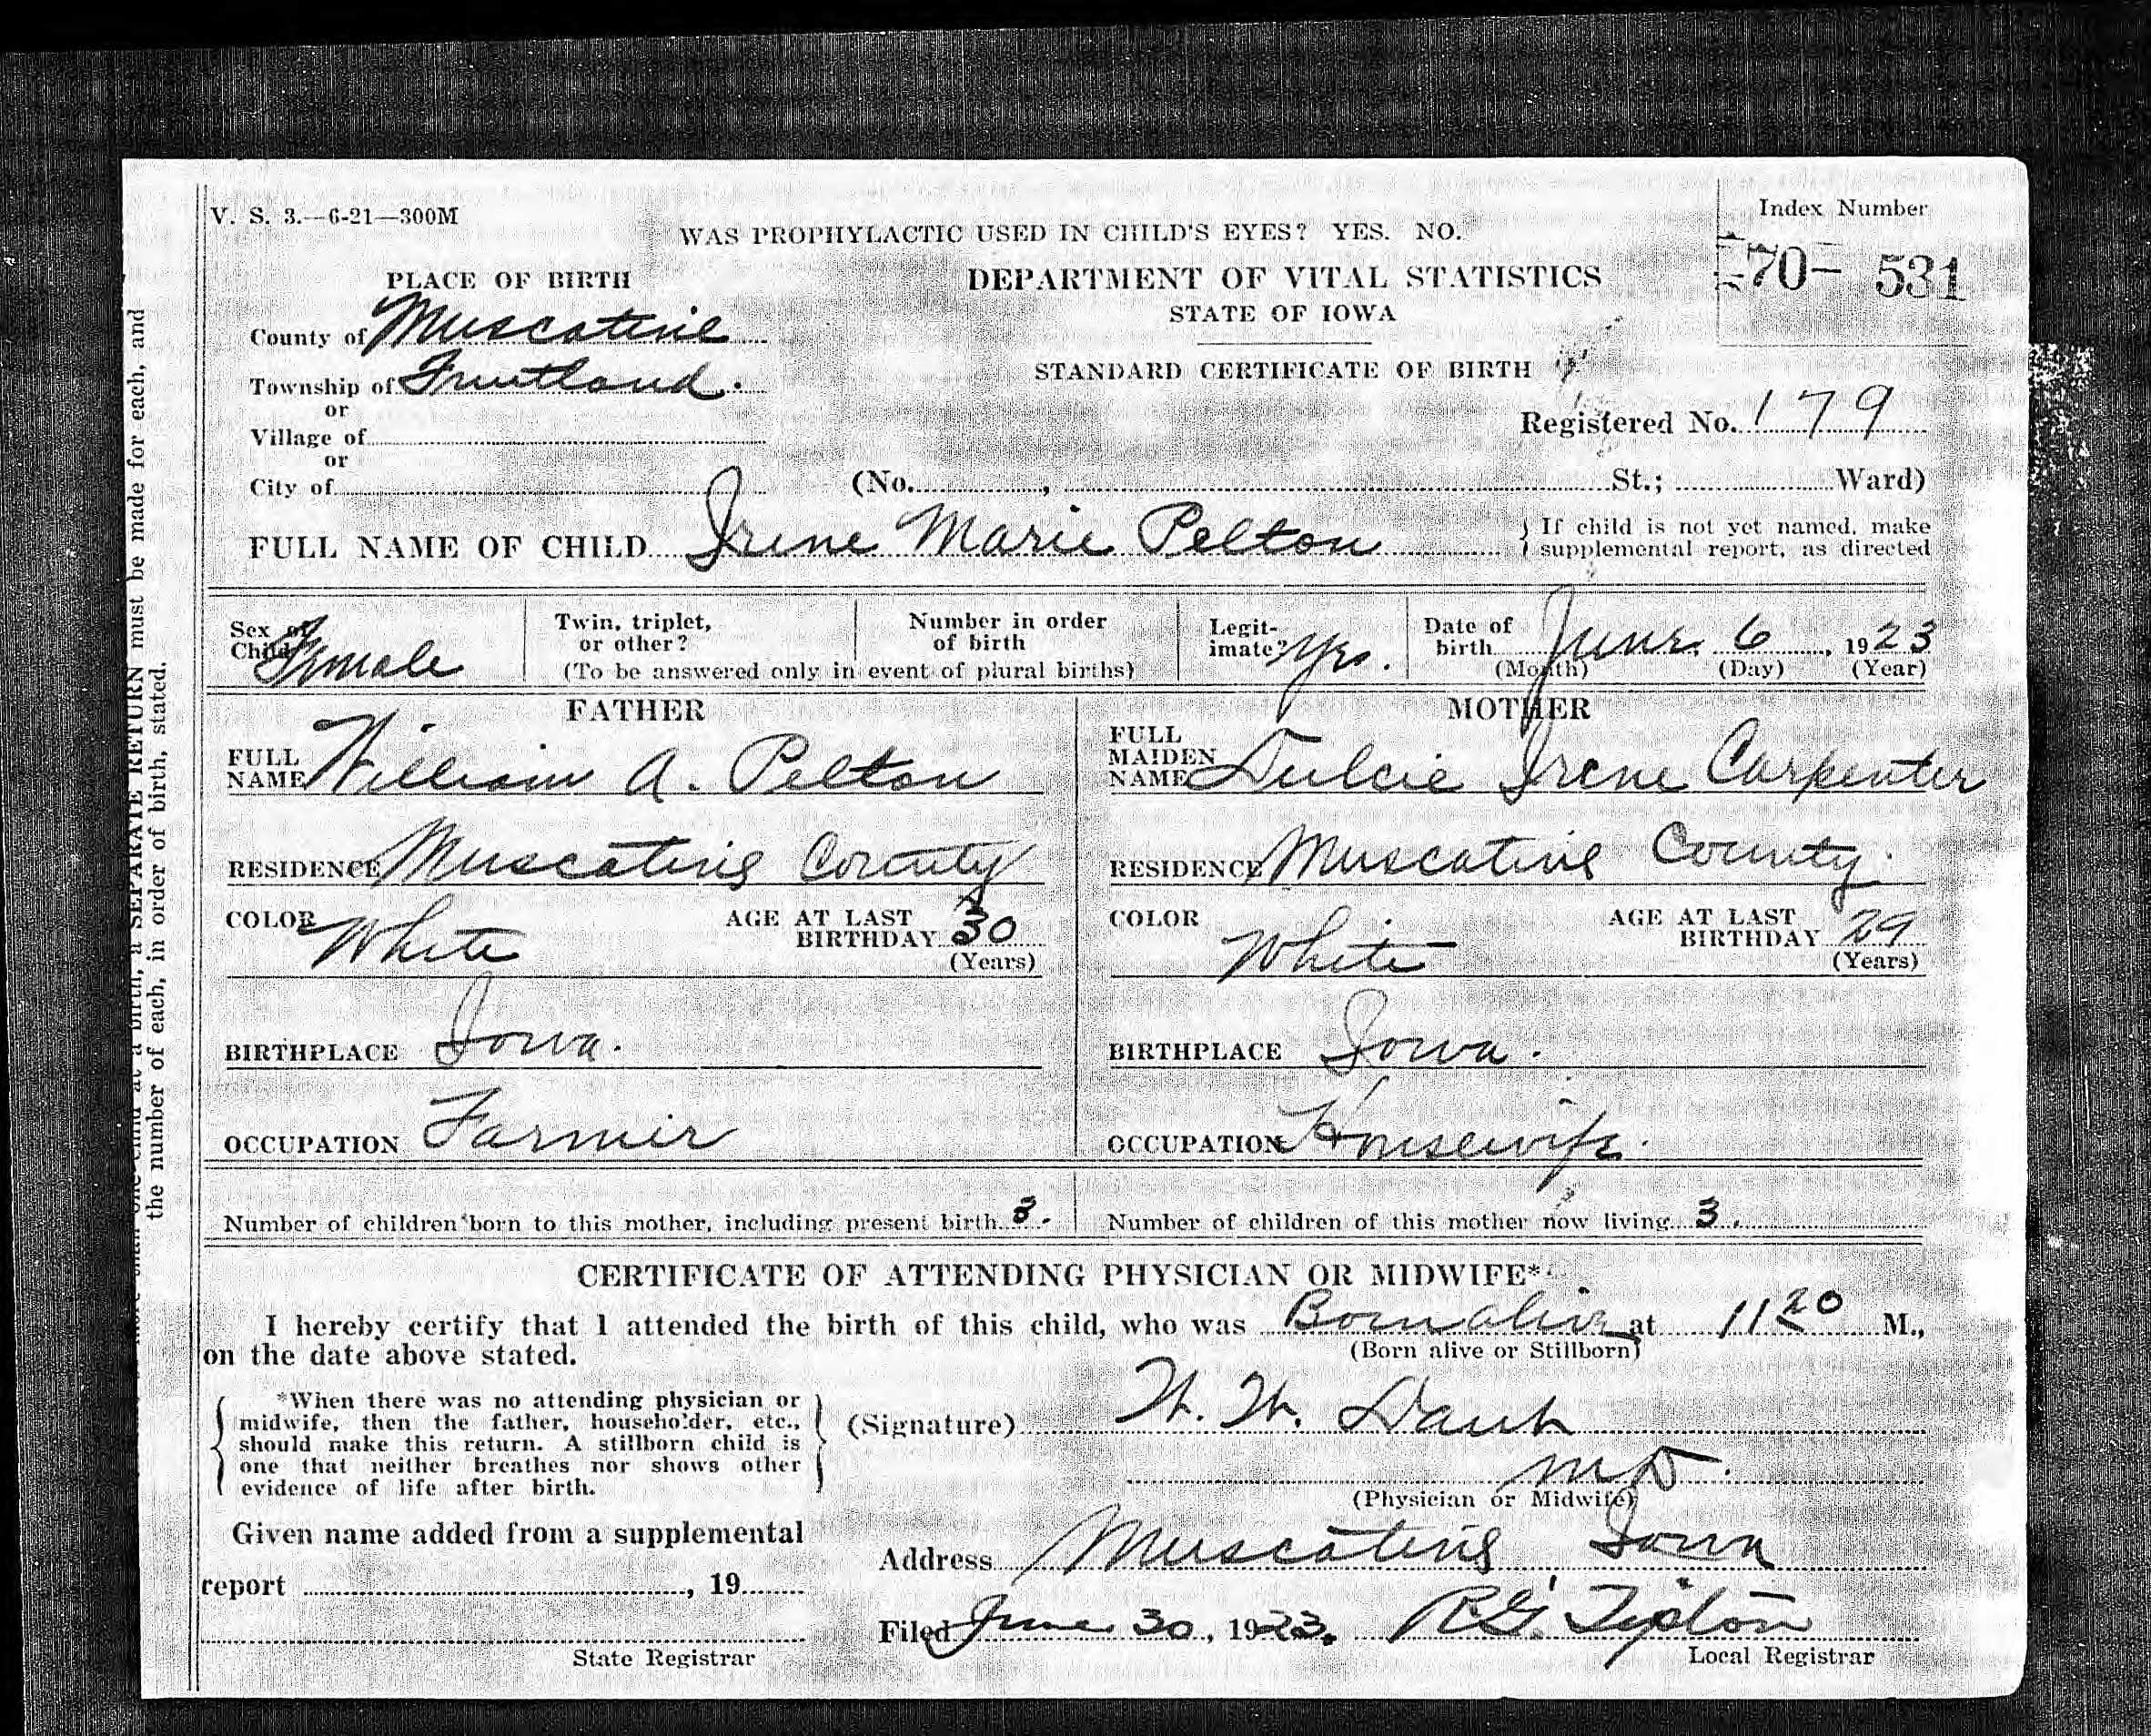 V. S. 3.—6-21—300M
Index Number
WAS PROPHYLACTIC USED IN CHILD'S EYES? YES. NO.
70- 531
PLACE OF BIRTH
DEPARTMENT OF VITAL STATISTICS
STATE OF IOWA
County of Muscatine
STANDARD CERTIFICATE OF BIRTH
Township of Fruitland.
or
Registered No. 179
Village of
or
City of (No. , St.; Ward)
FULL NAME OF CHILD Irene Marie Pelton } If child is not yet named, make
supplemental report, as directed
Sex of Child Female
Twin, triplet, or other?
Number in order of birth
(To be answered only in event of plural births)
Legit-imate? Yes.
Date of birth June 6, 1923
(Month) (Day) (Year)
FATHER
FULL NAME William A. Pelton
RESIDENCE Muscatine County
COLOR White
AGE AT LAST BIRTHDAY 30
(Years)
BIRTHPLACE Iowa.
OCCUPATION Farmer
MOTHER
FULL MAIDEN NAME Dulcie Irene Carpenter
RESIDENCE Muscatine County.
COLOR White
AGE AT LAST BIRTHDAY 29
(Years)
BIRTHPLACE Iowa.
OCCUPATION Housewife.
Number of children born to this mother, including present birth 3.
Number of children of this mother now living 3.
CERTIFICATE OF ATTENDING PHYSICIAN OR MIDWIFE*
I hereby certify that I attended the birth of this child, who was Born alive at 11 20 M.,
(Born alive or Stillborn)
on the date above stated.
*When there was no attending physician or
midwife, then the father, householder, etc.,
should make this return. A stillborn child is
one that neither breathes nor shows other
evidence of life after birth.
(Signature)
MD.
(Physician or Midwife)
Given name added from a supplemental
report , 19
State Registrar
Address Muscatine Iowa
Filed June 30, 1923. R.G. Tipton
Local Registrar
a SEPARATE RETURN must be made for each, and
the number of each, in order of birth, stated.